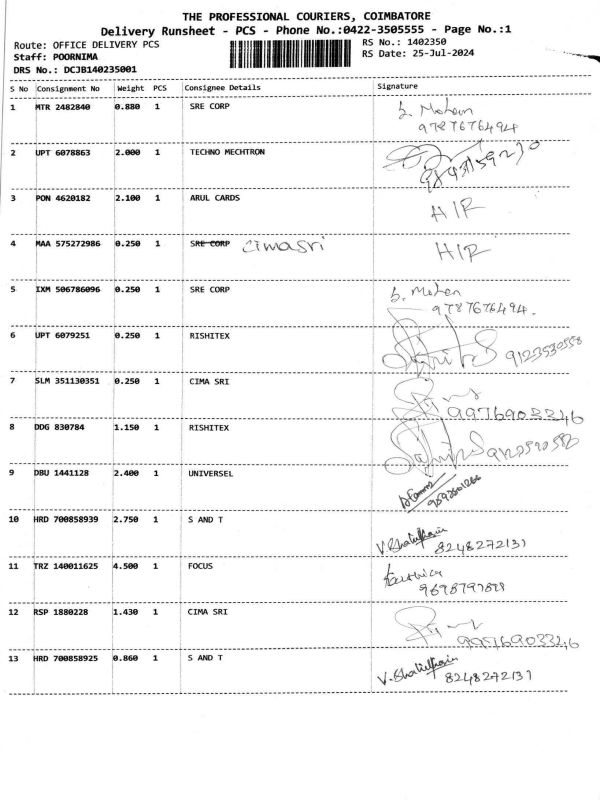 THE PROFESSIONAL COURIERS, COIMBATORE
Delivery Runsheet - PCS - Phone No.:0422-3505555 - Page No.:1
Route: OFFICE DELIVERY PCS RS No.: 1402350
Staff: POORNIMA RS Date: 25-Jul-2024
DRS No.: DCJB140235001
S No Consignment No Weight PCS Consignee Details Signature
1 MTR 2482840 0.880 1 SRE CORP b. Mohan
9787676494
2 UPT 6078863 2.000 1 TECHNO MECHTRON
3 PON 4620182 2.100 1 ARUL CARDS H/R
4 MAA 575272986 0.250 1 SRE CORP cimasri H/R
5 IXM 506786096 0.250 1 SRE CORP b. Mohan
9787676494.
6 UPT 6079251 0.250 1 RISHITEX 9123530558
7 SLM 351130351 0.250 1 CIMA SRI
8 DDG 830784 1.150 1 RISHITEX
9 DBU 1441128 2.400 1 UNIVERSEL
10 HRD 700858939 2.750 1 S AND T
8248272131
11 TRZ 140011625 4.500 1 FOCUS
12 RSP 1880228 1.430 1 CIMA SRI
13 HRD 700858925 0.860 1 S AND T
8248272131